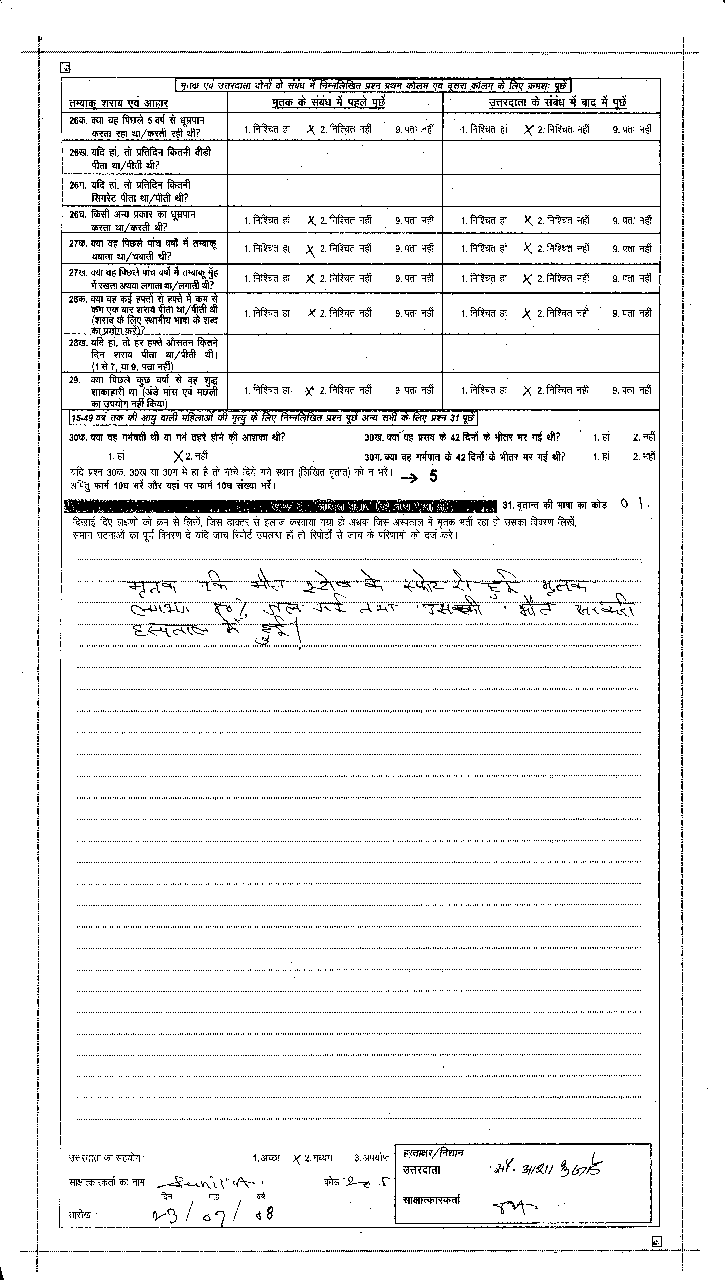 मृतक एवं उत्तरदाता दोनों के संबंध में निम्नलिखित प्रश्न प्रथम कॉलम एवं दूसरा कॉलम के लिए क्रमशः पूछें
तम्बाकू शराब एवं आहार मृतक के संबंध में पहले पूछें उत्तरदाता के संबंध में बाद में पूछें
26क. क्या वह पिछले 5 वर्ष से धूम्रपान
करता रहा था/करती रही थी? 1. निश्चित हां X 2. निश्चित नहीं 9. पता नहीं 1. निश्चित हां X 2. निश्चित नहीं 9. पता नहीं
26ख. यदि हां, तो प्रतिदिन कितनी बीडी
पीता था/पीती थी?
26ग. यदि हां, तो प्रतिदिन कितनी
सिगरेट पीता था/पीती थी?
26घ. किसी अन्य प्रकार का धूम्रपान
करता था/करती थी? 1. निश्चित हां X 2. निश्चित नहीं 9. पता नहीं 1. निश्चित हां X 2. निश्चित नहीं 9. पता नहीं
27क. क्या वह पिछले पांच वर्षों में तम्बाकू
चबाता था/चबाती थी? 1. निश्चित हां X 2. निश्चित नहीं 9. पता नहीं 1. निश्चित हां X 2. निश्चित नहीं 9. पता नहीं
27ख. क्या वह पिछले पांच वर्षों में तम्बाकू मुंह
में रखता अथवा लगाता था/लगाती थी? 1. निश्चित हां X 2. निश्चित नहीं 9. पता नहीं 1. निश्चित हां X 2. निश्चित नहीं 9. पता नहीं
28क. क्या वह कई हफ्तों से हफ्ते में कम से
कम एक बार शराब पीता था/पीती थी
(शराब के लिए स्थानीय भाषा के शब्द
का प्रयोग करें)? 1. निश्चित हां X 2. निश्चित नहीं 9. पता नहीं 1. निश्चित हां X 2. निश्चित नहीं 9. पता नहीं
28ख. यदि हां, तो हर हफ्ते औसतन कितने
दिन शराब पीता था/पीती थी।
(1 से 7, या 9, पता नहीं)
29. क्या पिछले कुछ वर्षों से वह शुद्ध
शाकाहारी था (अंडे मांस एवं मछली
का उपयोग नहीं किया) 1. निश्चित हां X 2. निश्चित नहीं 9. पता नहीं 1. निश्चित हां X 2. निश्चित नहीं 9. पता नहीं
15-49 वर्ष तक की आयु वाली महिलाओं की मृत्यु के लिए निम्नलिखित प्रश्न पूछें अन्य सभी के लिए प्रश्न 31 पूछें
30क. क्या वह गर्भवती थी या गर्भ ठहरे होने की आशंका थी? 30ख. क्या वह प्रसव के 42 दिनों के भीतर मर गई थी? 1. हां 2. नहीं
1. हां X 2. नहीं 30ग. क्या वह गर्भपात के 42 दिनों के भीतर मर गई थी? 1. हां 2. नहीं
यदि प्रश्न 30क, 30ख या 30ग में हां है तो नीचे दिये गये स्थान (लिखित वृतान्त) को न भरें।
अपितु फार्म 10घ भरें और यहां पर फार्म 10घ संख्या भरें। → 5
31. वृतान्त की भाषा का कोड 01
दिखाई दिए लक्षणों को क्रम से लिखें, जिस डाक्टर से इलाज करवाया गया हो अथवा जिस अस्पताल में मृतक भर्ती रहा हो उसका विवरण लिखें,
समान घटनाओं का पूर्व विवरण दे यदि जांच रिपोर्ट उपलब्ध हो तो रिपोर्टों से जांच के परिणामों को दर्ज करें।
मृतक कि मौत स्टोव के स्फोट से हुई मृतक
लगभग 80% जल गई तथा उसकी मौत सरकारी
हस्पताल में हुई।
उत्तरदाता का सहयोग 1. अच्छा X 2. मध्यम 3. अपर्याप्त हस्ताक्षर/निशान
उत्तरदाता
साक्षात्कारकर्ता का नाम कोड
दिन माह वर्ष साक्षात्कारकर्ता
तारीख 23/07/08